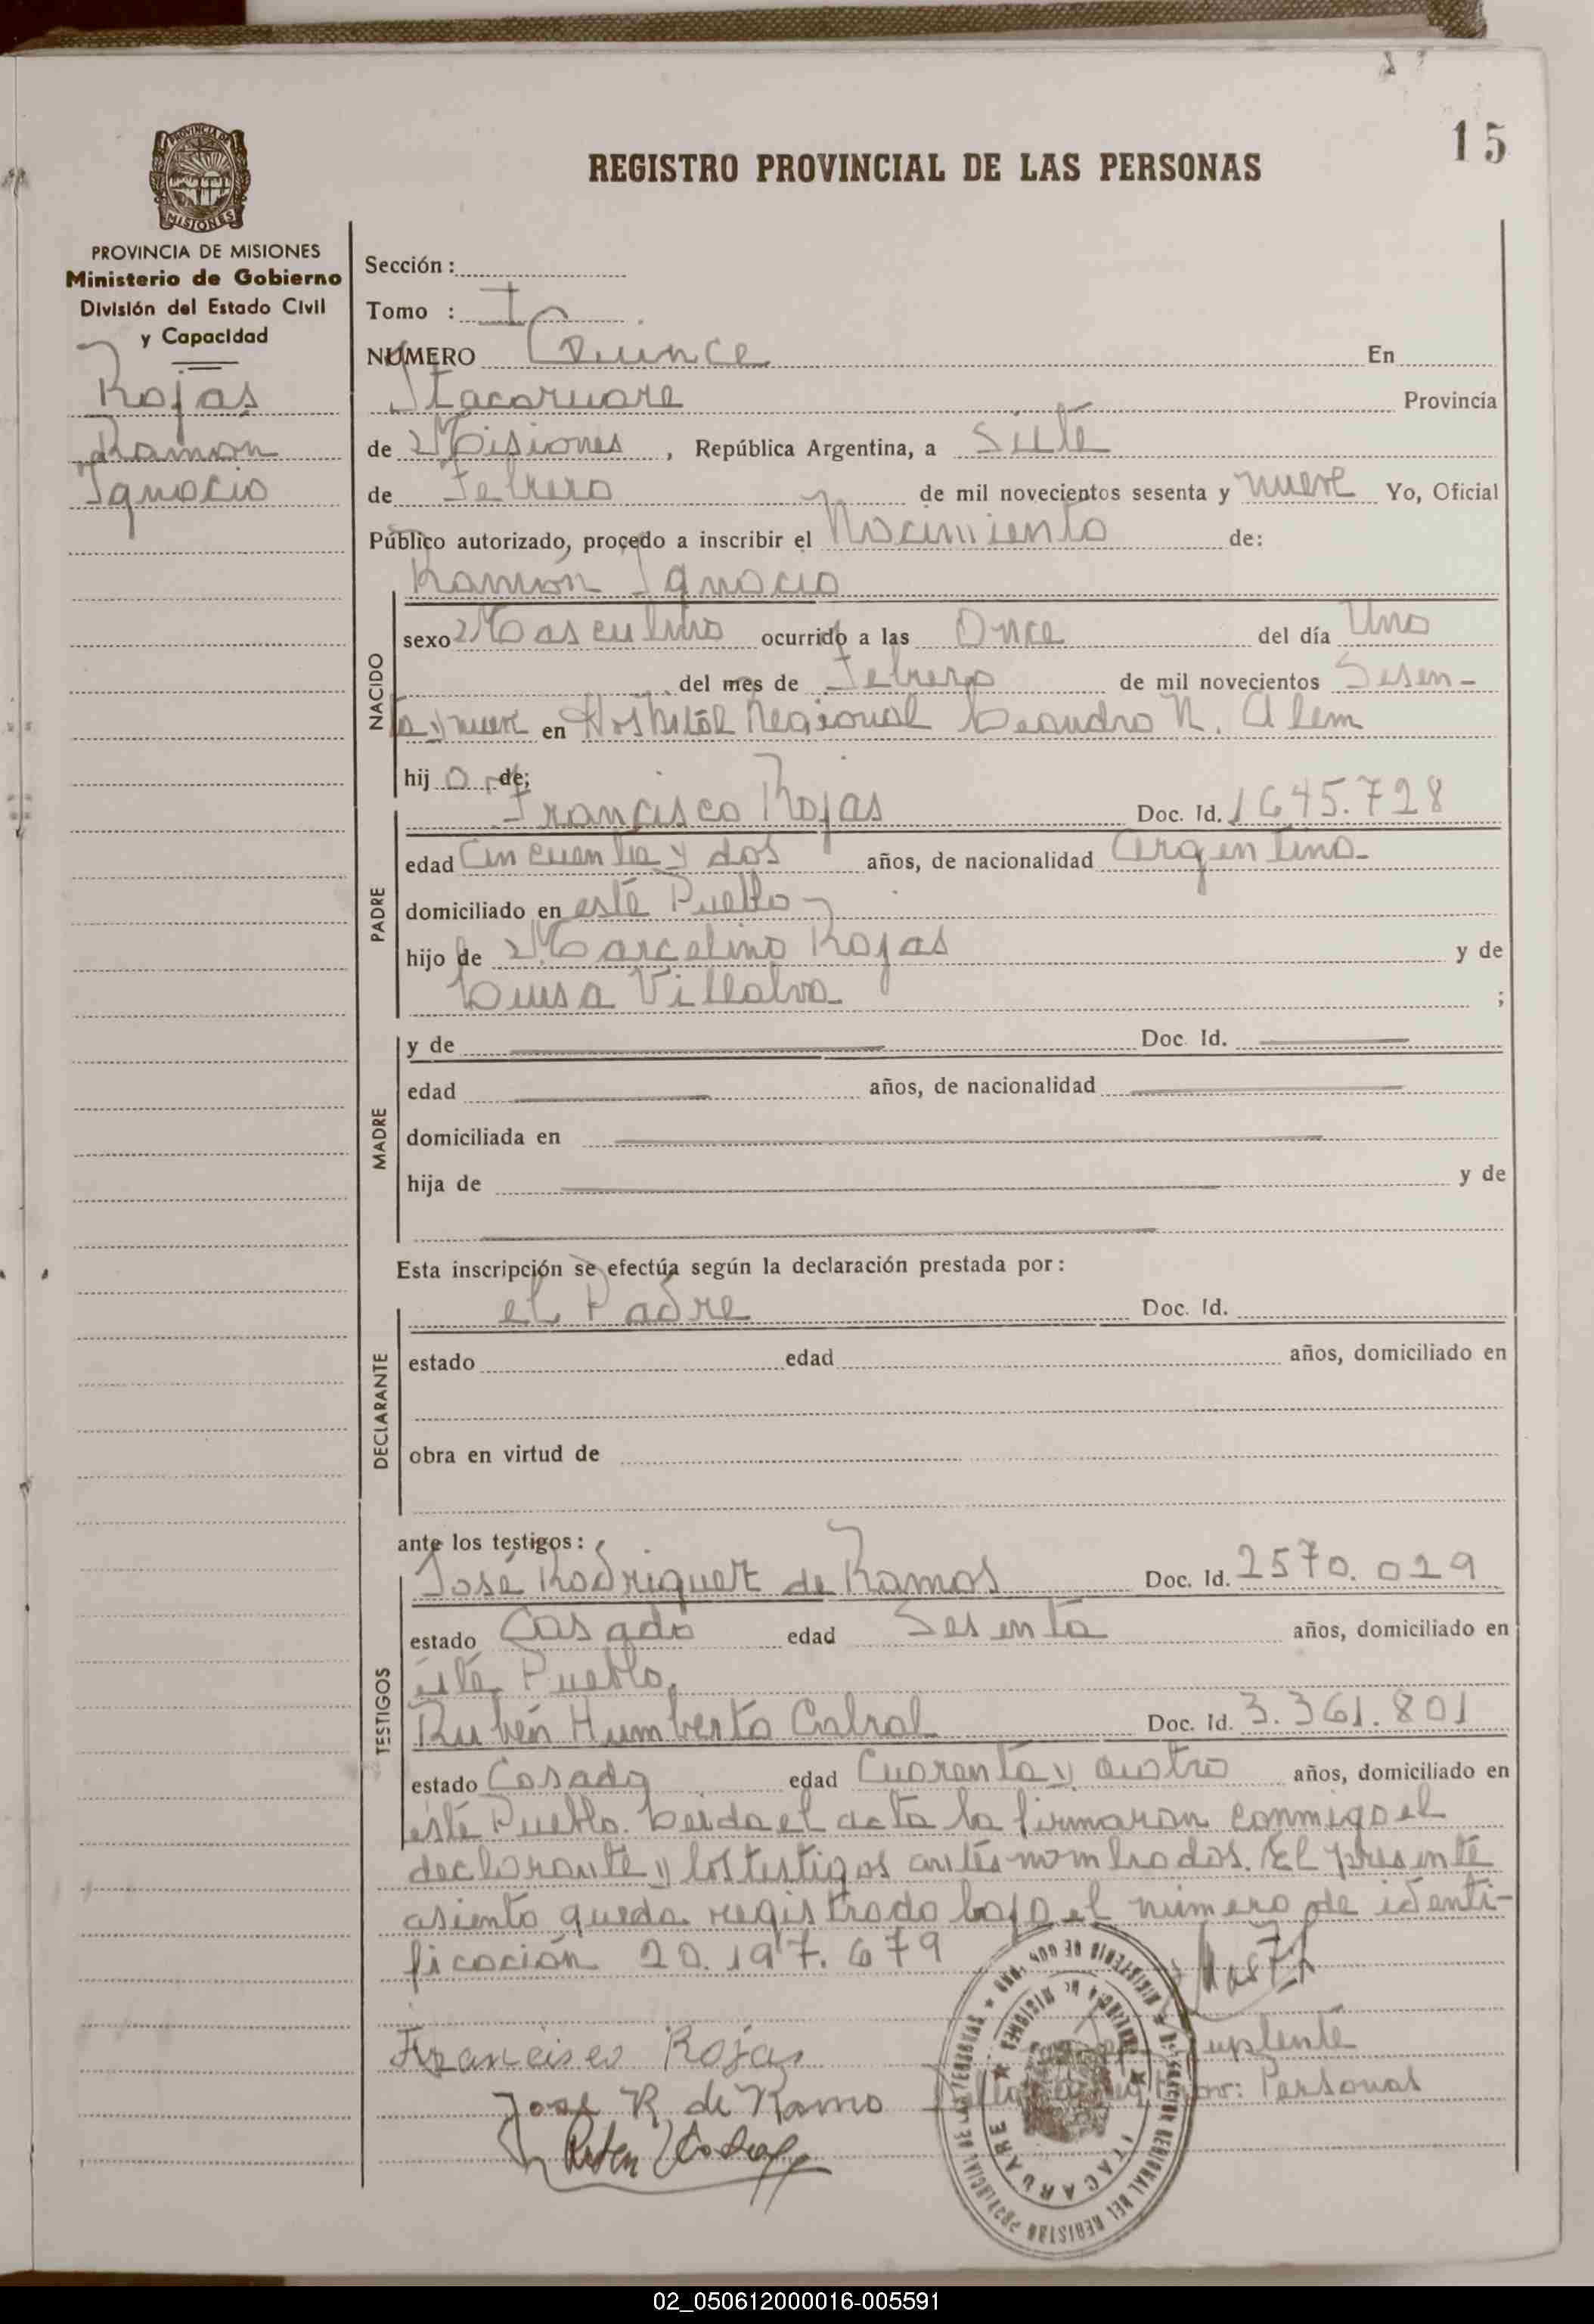 15
REGISTRO PROVINCIAL DE LAS PERSONAS
PROVINCIA DE MISIONES
Ministerio de Gobierno
División del Estado Civil
y Capacidad
Rojas
Ramon
Ignacio
Sección :
Tomo : I
NUMERO Quince En
Itacaruare Provincia
de Misiones, República Argentina, a siete
de Febrero de mil novecientos sesenta y nueve Yo, Oficial
Público autorizado, procedo a inscribir el Nacimiento de:
Ramón Ignacio
NACIDO
sexo Masculino ocurrido a las Once del día Uno
del mes de Febrero de mil novecientos Sesen-
ta y nueve en Hospital Regional Leandro N. Alem
hij o de;
PADRE
Francisco Rojas Doc. Id. 1645.728
edad Cincuenta y dos años, de nacionalidad Argentina-
domiciliado en este Pueblo
hijo de Marcelino Rojas y de
Luisa Villalva ;
MADRE
y de Doc. Id.
edad años, de nacionalidad
domiciliada en
hija de y de
Esta inscripción se efectúa según la declaración prestada por :
DECLARANTE
el Padre Doc. Id.
estado edad años, domiciliado en
obra en virtud de
ante los testigos :
TESTIGOS
José Rodriguez de Ramos Doc. Id. 2570.029
estado Casado edad Sesenta años, domiciliado en
éste Pueblo,
Rubén Humberto Cabral Doc. Id. 3.361.801
estado Casado edad Cuarenta y cuatro años, domiciliado en
éste Pueblo. Leida el acta la firmaron conmigo el
declarante y los testigos antes nombrados. El presente
asiento queda registrado bajo el número de identi-
ficación 20.197.679
Francisco Rojas
Jose R. de Ramo
Ruben H Cabral
Suplente
Personas
ITACARUARE
02_050612000016-005591